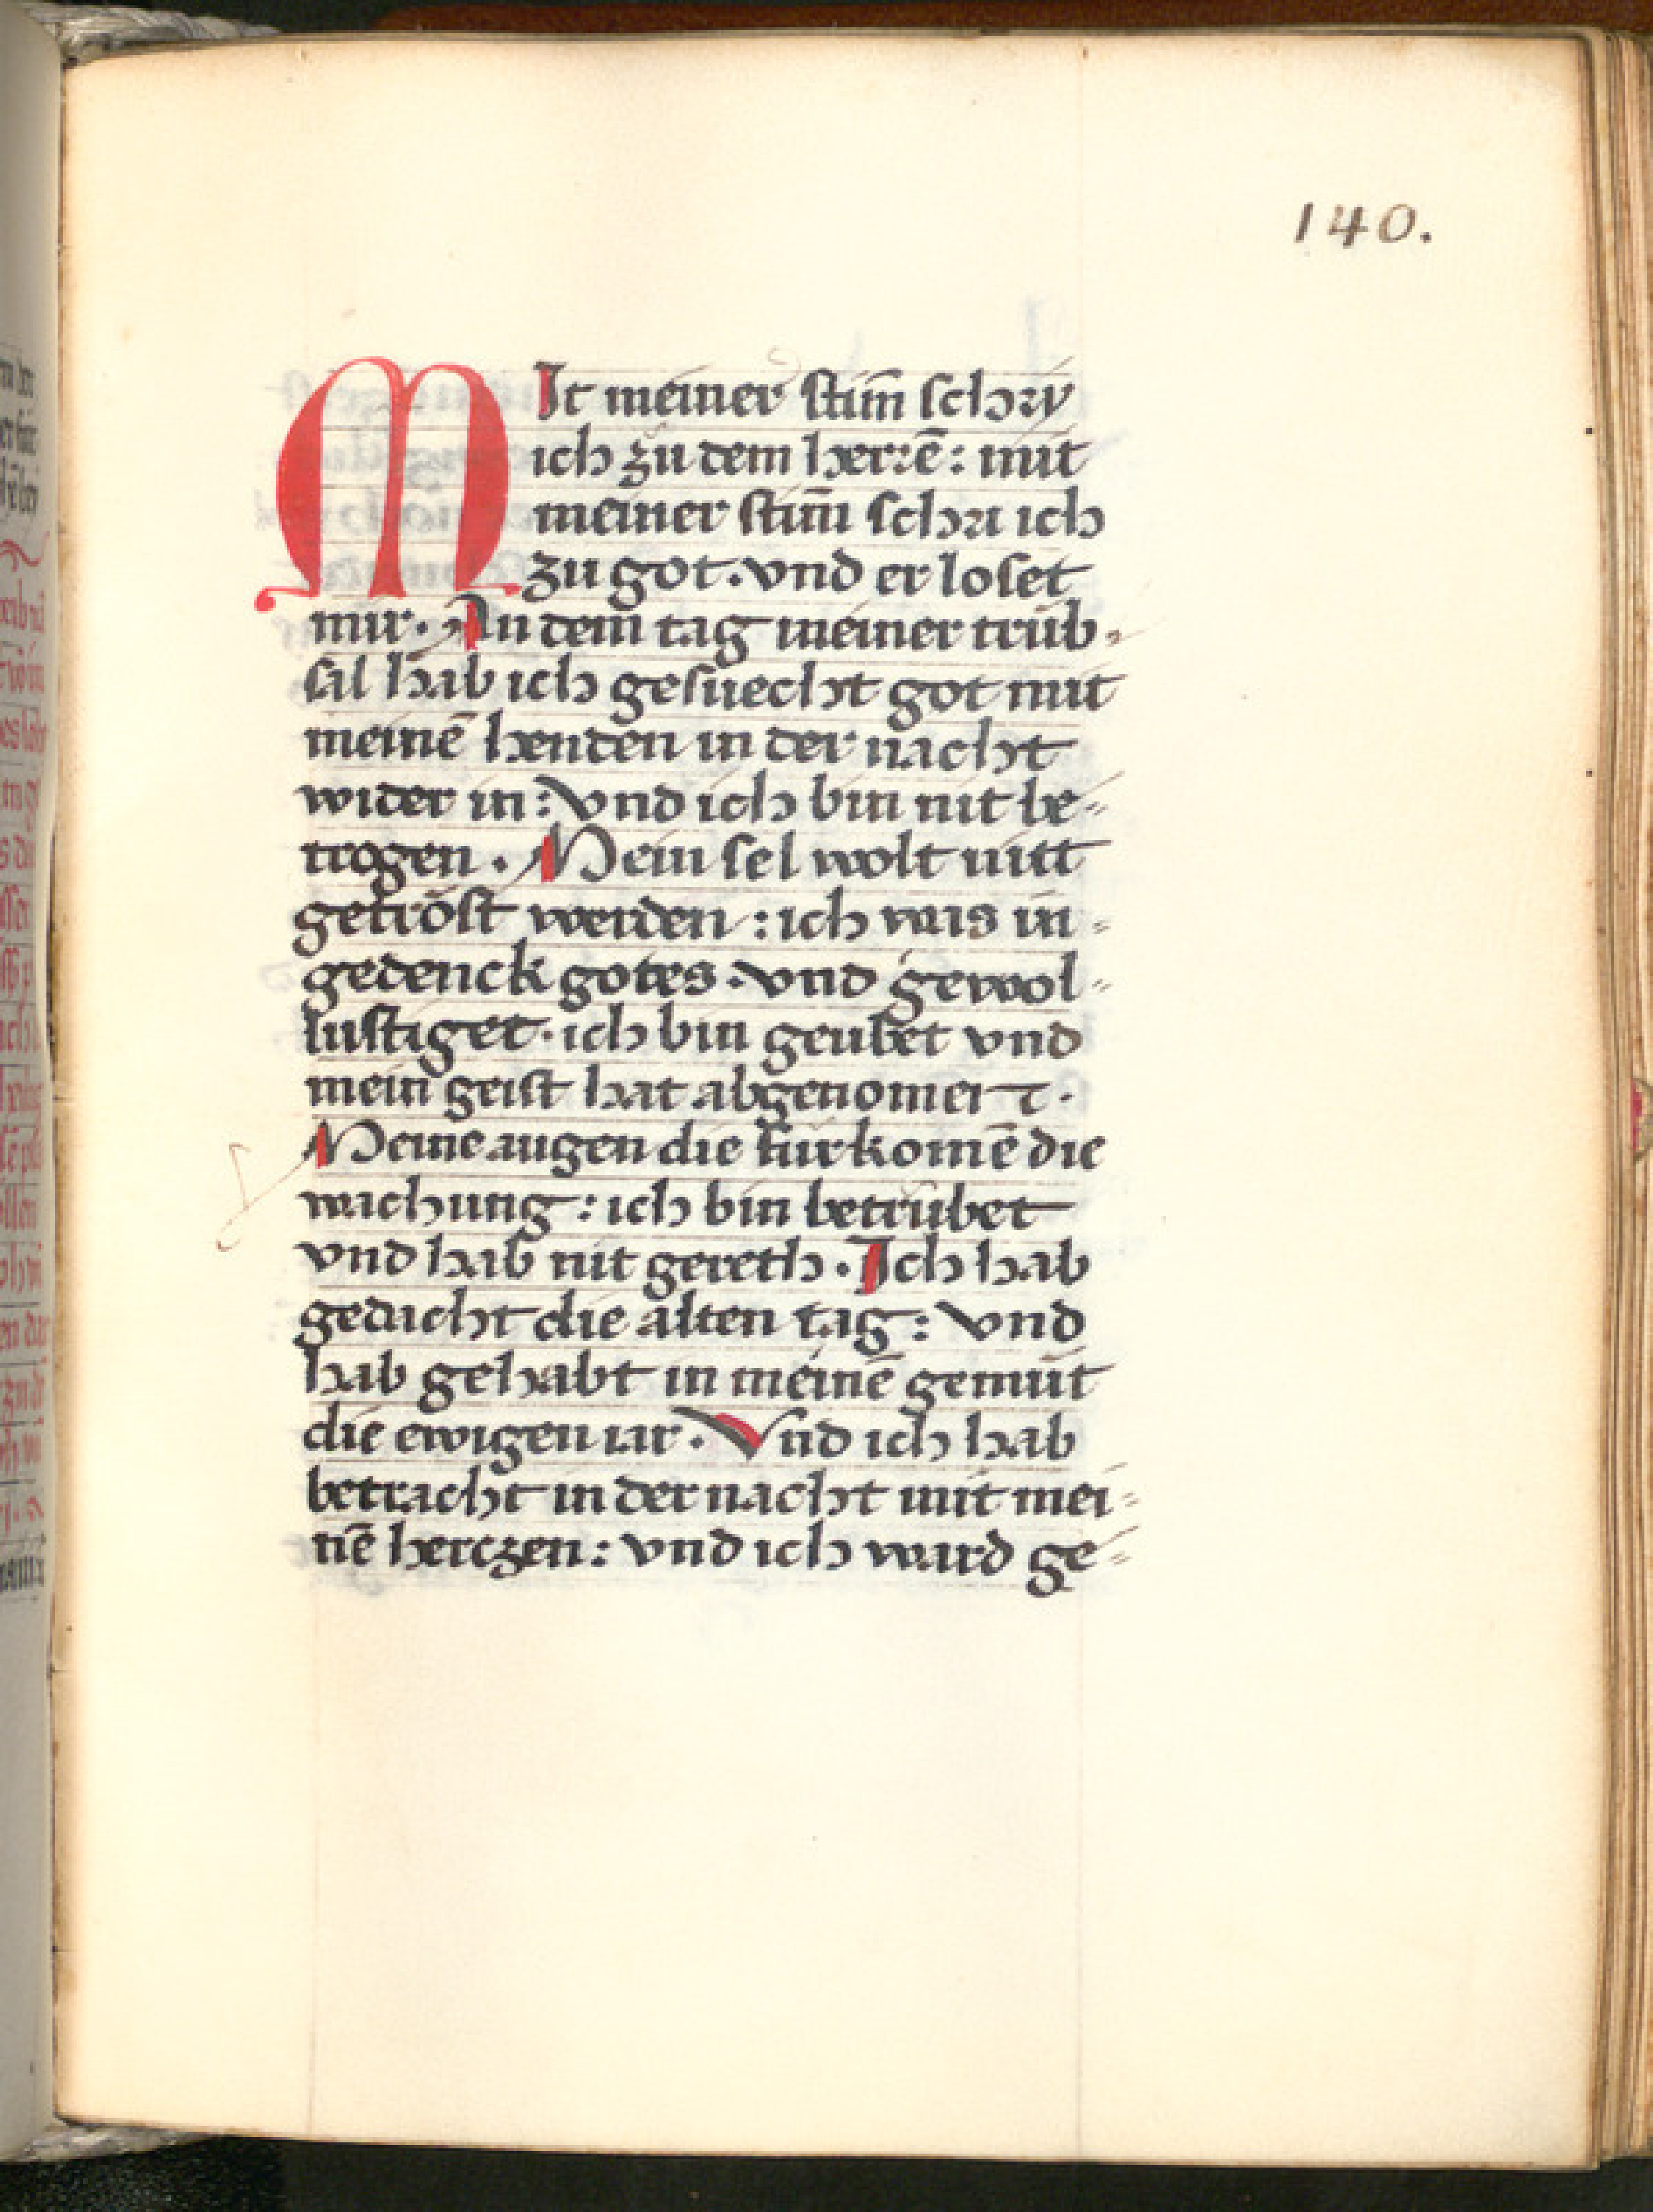 140.
MIt meiner stim̄ schry
ich zu dem herrē: mit
meiner stim̄ schri ich
zu got. vnd er loset
mir. An dem tag meiner trüb-
sal hab ich gesuecht got mit
meinē henden in der nacht
wider in: vnd ich bin nit be-
trogen. Mein sel wolt nitt
getröst werden: ich was in-
gedenck gotes. vnd gewol-
lustiget. ich bin geubet vnd
mein geist hat abgenomen.
Meine augen die fürkomē die
wachung: ich bin betrübet
vnd hab nit gereth. Ich hab
gedacht die alten tag: vnd
hab gehabt in meinē gemüt
die ewigen iar. Vnd ich hab
betracht in der nacht mit mei-
nē herczen: vnd ich ward ge-